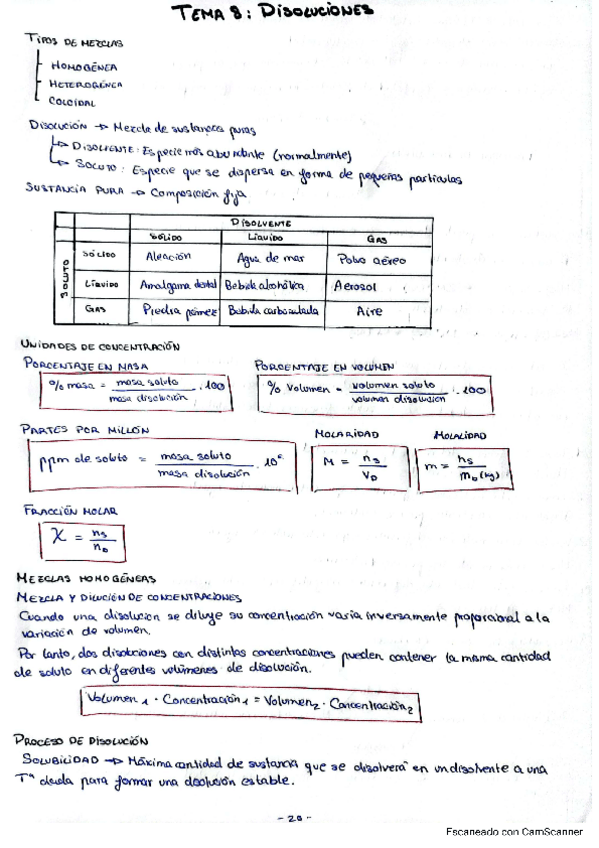 TEMA 8: DISOLUCIONES
TIPOS DE MEZCLAS
HOMOGÉNEA
HETEROGÉNEA
COLOIDAL
DISOLUCIÓN → Mezcla de sustancias puras
DISOLVENTE: Especie más abundante (normalmente)
SOLUTO: Especie que se dispersa en forma de pequeñas partículas
SUSTANCIA PURA → Composición fija
DISOLVENTE
SÓLIDO LÍQUIDO GAS
SOLUTO
SÓLIDO Aleación Agua de mar Polvo aéreo
LÍQUIDO Amalgama dental Bebida alcohólica Aerosol
GAS Piedra pómez Bebida carbonatada Aire
UNIDADES DE CONCENTRACIÓN
PORCENTAJE EN MASA PORCENTAJE EN VOLUMEN
% masa = masa soluto / masa disolución · 100 % Volumen = volumen soluto / volumen disolución · 100
PARTES POR MILLÓN MOLARIDAD MOLALIDAD
ppm de soluto = masa soluto / masa disolución · 10⁶ M = ns / VD m = ns / mD (kg)
FRACCIÓN MOLAR
X = ns / nD
MEZCLAS HOMOGÉNEAS
MEZCLA Y DILUCIÓN DE CONCENTRACIONES
Cuando una disolución se diluye su concentración varía inversamente proporcional a la
variación de volumen.
Por tanto, dos disoluciones con distintas concentraciones pueden contener la misma cantidad
de soluto en diferentes volúmenes de disolución.
Volumen₁ · Concentración₁ = Volumen₂ · Concentración₂
PROCESO DE DISOLUCIÓN
SOLUBILIDAD → Máxima cantidad de sustancia que se disolverá en un disolvente a una
Tª dada para formar una disolución estable.
- 20 -
Escaneado con CamScanner